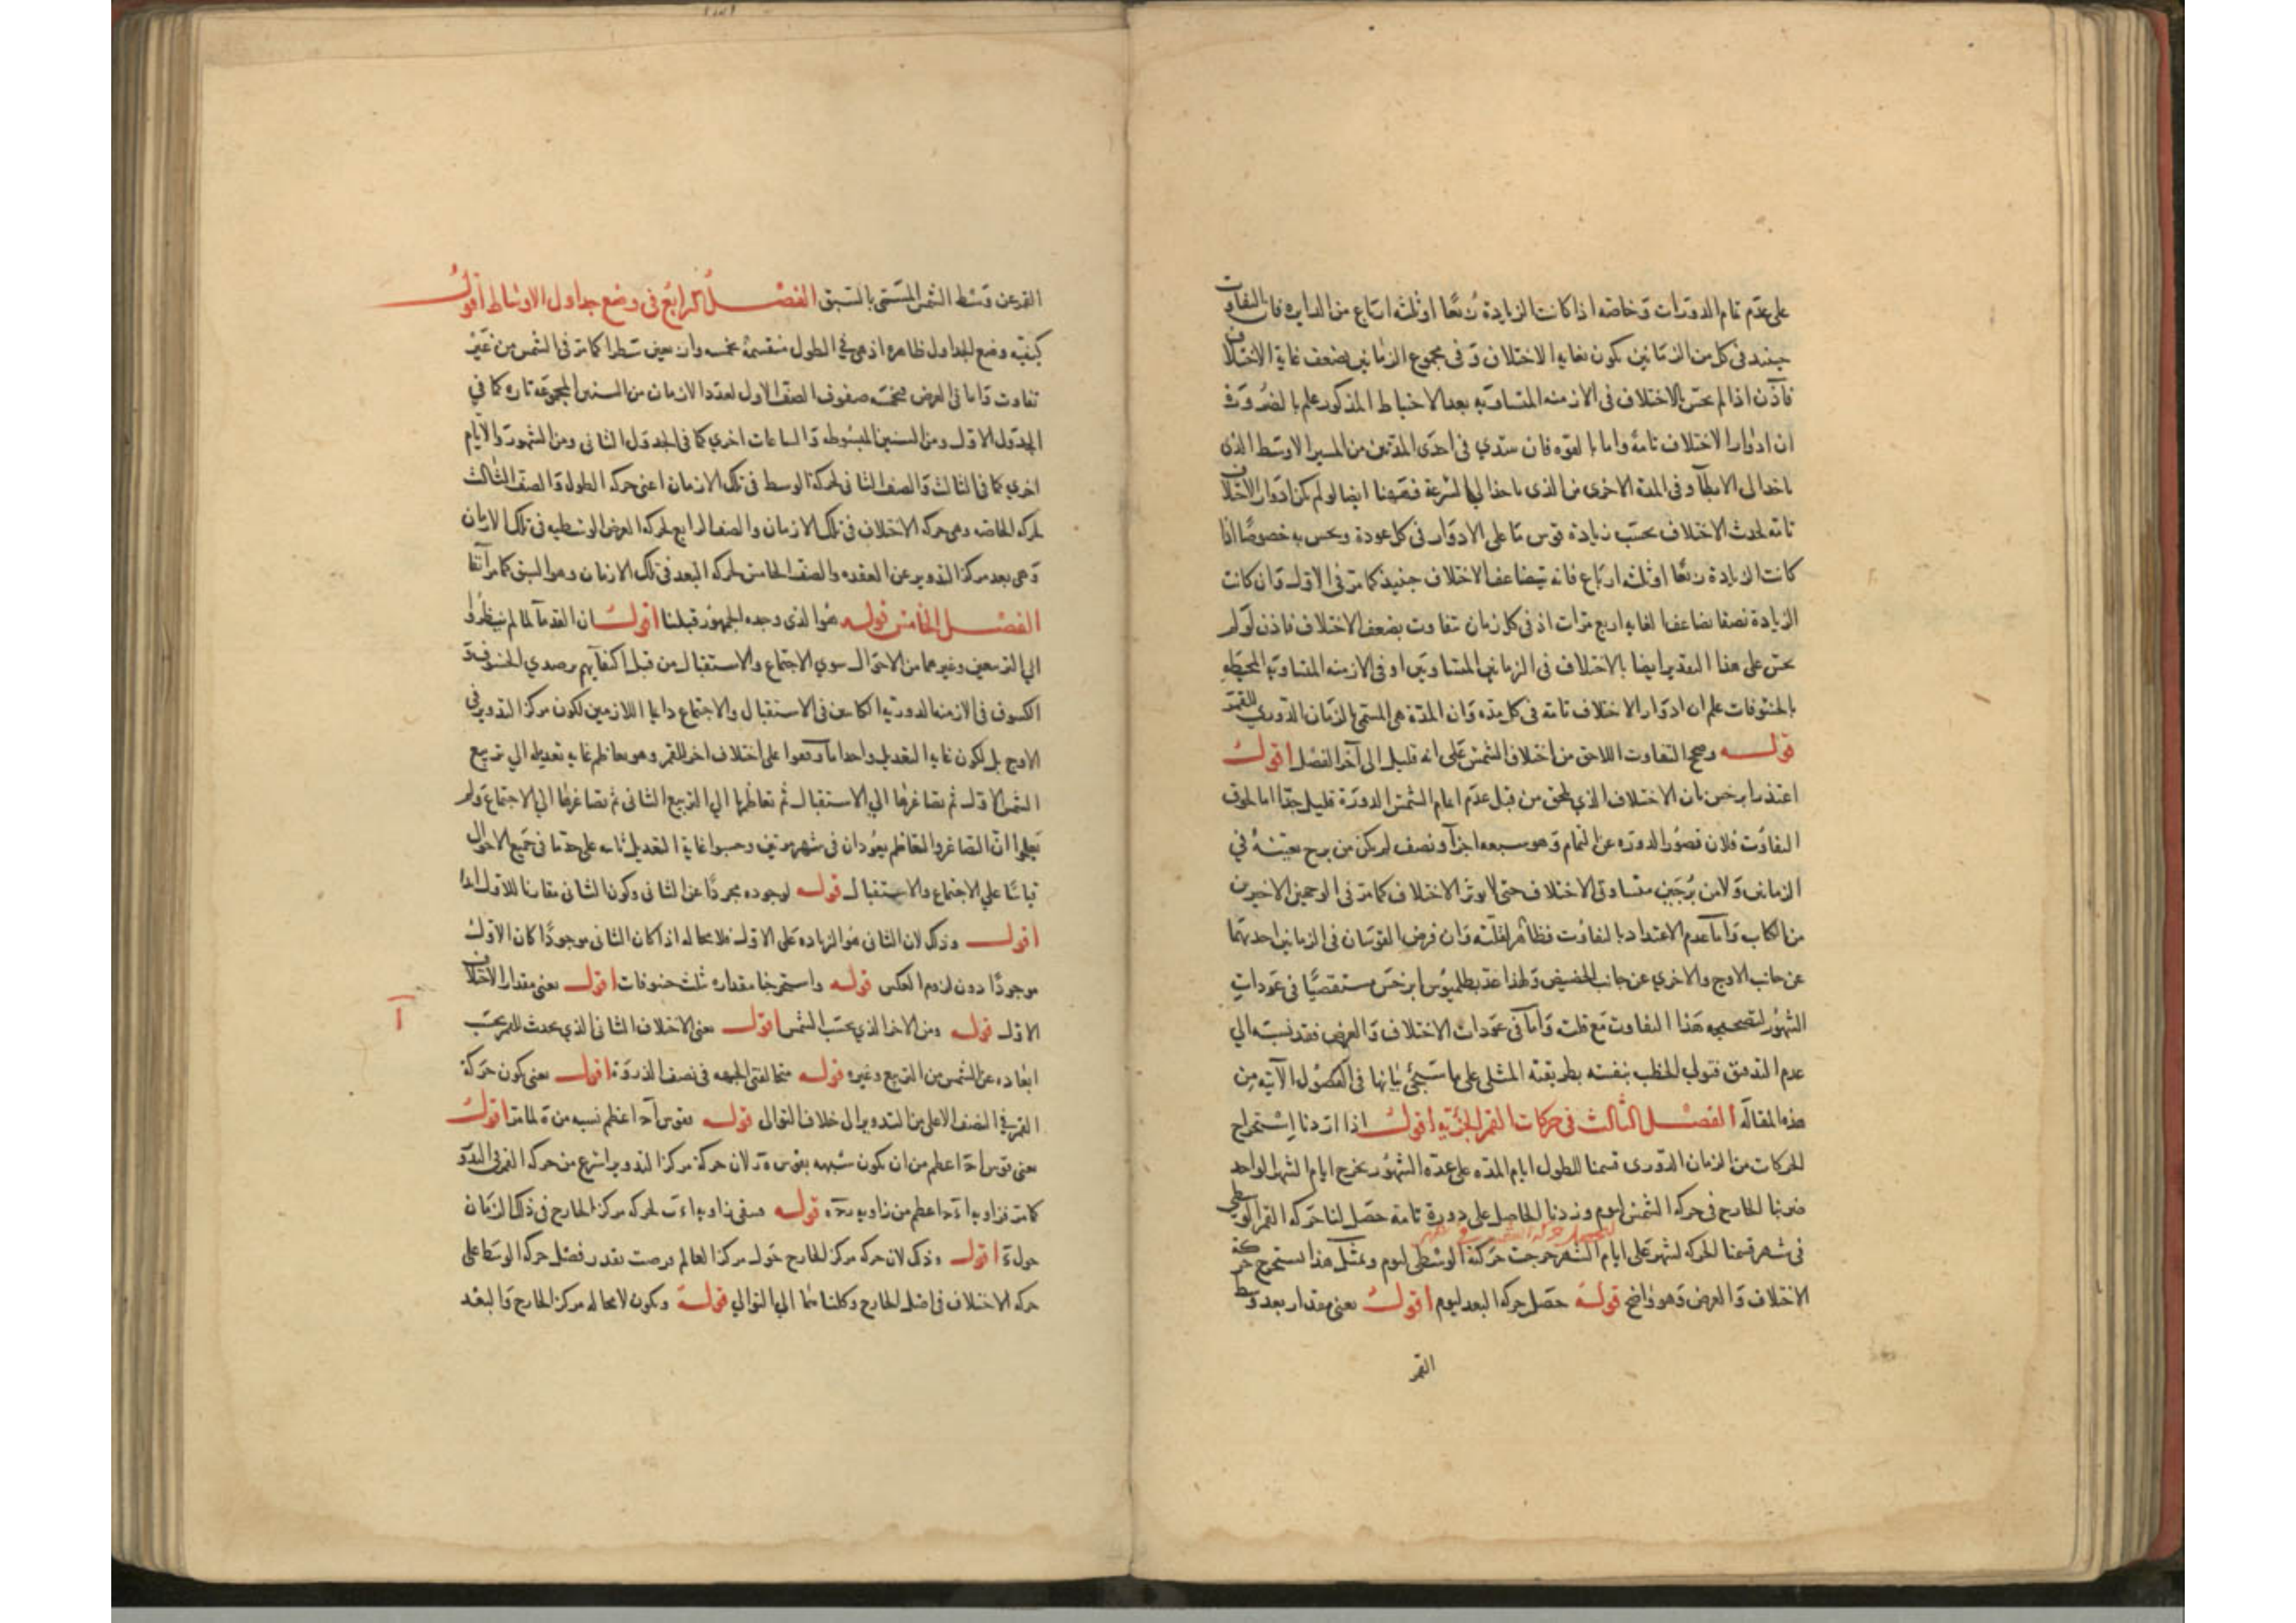 على عدم تمام الدورات وخاصة اذا كانت الزيادة ربعا او ثلثة ارباع من الدايره فان التفاوت
حينئذ فى كل من الزمانين يكون بغاية الاختلاف وفى مجموع الزمانين بضعف غاية الاختلاف
فاذن اذا لم يحس بالاختلاف فى الازمنه المتساويه بعد الاحتياط المذكور علم بالضرورة
ان ادوار الاختلاف تامة واما بالقوه فان ستدي فى احدى المدتين من المسير الاوسط الذى
ياخذ الى الابطآ وفى المدة الاخرى من الذى ياخذ الي السرعة فههنا ايضا لو لم يكن ادوار الاختلاف
تامه لحدث الاختلاف بحسب زيادة قوس ما على الادوار فى كل عودة ويحس به خصوصا اذا
كانت الزيادة ربعا او ثلثه ارباع فانه يتضاعف الاختلاف حينئذ كما مر فى الاول وان كانت
الزيادة نصفا يضاعف الغايه اربع مرات اذ فى كل زمان تفاوت بضعف الاختلاف فاذن لو لم
يحس على هذا التقدير ايضا بالاختلاف فى الزمانين المتساويين او فى الازمنه المتساويه المحيطه
بالخسوفات علم ان ادوار الاختلاف تامة فى كل مدة وان المدة هى المسمى بالزمان الدوري للقمر
قوله وصحح التفاوت اللاحق من اختلاف الشمس على انه قليل الى آخر الفصل اقول
اعتذر ابرخس بان الاختلاف الذي لحق من قبل عدم اتمام الشمس الدورة قليل جدا اما لحوق
التفاوت فلان قصور الدوره عن التمام وهو سبعه اجزآ ونصف لم يكن من برج بعينه في
الزمانين ولا من برجين متساوى الاختلاف حتى لا يوثر الاختلاف كما مر فى الوجهين الاخيرين
من الكتاب واما عدم الاعتداد بالتفاوت فظاهر لقلته وان فرض القوسان فى الزمانين احدهما
عن جانب الاوج والاخري عن جانب الحضيض ولهذا عد بطلميوس ابرخس مستقصيا فى عودات
الشهور لتصحيحه هذا التفاوت مع قلته واما فى عودات الاختلاف والعرض فقد نسبه الي
عدم التدقيق فتولى الخطب بنفسه بطريقته المثلى على ما سيجئ بيانها فى الفصول الآتيه من
هذه المقاله الفصل الثالث فى حركات القمر الجزئية اقول اذا اردنا استخراج
الحركات من الزمان الدورى قسمنا للطول ايام المدة على عدة الشهور يخرج ايام الشهر الواحد
ضربنا الخارج فى حركه الشمس ليوم وزدنا الحاصل على دورة تامة حصل لنا حركه القمر الوسطى
فى شهر قسمنا الحركه لشهر على ايام الشهر خرجت حركته الوسطى ليوم وبمثل هذا نستخرج حركة
الاختلاف والعرض وهو واضح قوله حصل حركه البعد ليوم اقول يعنى مقدار بعد وسط
القمر
القمر عن وسط الشمس المسمى بالسبق الفصل الرابع فى وضع جداول الاوساط اقول
كيفيه وضع الجداول ظاهره اذ هى في الطول منقسمة بخمسه واربعين سطرا كما مر فى الشمس من غير
تفاوت واما فى العرض فبخمسه صفوف الصف الاول لعدد الازمان من السنين المجموعه تاره كما في
الجدول الاول ومن السنين المبسوطه والساعات اخري كما فى الجدول الثانى ومن الشهور والايام
اخري كما فى الثالث والصف الثانى لحركة الوسط فى تلك الازمان اعنى حركه الطول والصف الثالث
لحركه الخاصه وهى حركه الاختلاف فى تلك الازمان والصف الرابع لحركه العرض الوسطيه فى تلك الازمان
وهى بعد مركز التدوير عن العقده والصف الخامس لحركه البعد فى تلك الازمان وهو السبق كما مر آنفا
الفصل الخامس قوله هو الذى وجده الجمهور قبلنا اقول ان القدمآ لما لم ينظروا
الي التربيعين وغيرهما من الاحوال سوي الاجتماع والاستقبال من قبل اكتفآيهم برصدي الخسوف و
الكسوف فى الازمنه الدوريه الكاينين فى الاستقبال والاجتماع دايما اللازمين لكون مركز التدوير فى
الاوج بل لكون غايه التعديل واحدا ما وقعوا على اختلاف اخر للقمر وهو تعاظم غايه تعديله الي تربيع
الشمس الاول ثم تصاغرها الي الاستقبال ثم تعاظمها الي التربيع الثانى ثم تصاغرها الي الاجتماع ولم
يعلموا ان التصاغر والتعاظم يعودان فى شهر مرتين وحسبوا غاية التعديل ثابته على حد ما فى جميع الاحوال
قياسا علي الاجتماع والاستقبال قوله لوجوده مجردا عن الثانى وكون الثانى مقارنا للاول ابدا
اقول وذلك لان الثانى هو الزياده على الاول فلا محاله اذا كان الثانى موجودا كان الاول
موجودا دون لزوم العكس قوله واستخرجنا مقداره بثلث خسوفات اقول يعنى مقدار الاختلاف
الاول قوله ومن الاخر الذي بحسب الشمس اقول يعنى الاختلاف الثانى الذي يحدث للقمر بحسب
ابعاده عن الشمس من التربيع وغيره قوله متخالفتى الجهه فى نصف الذروة اقول يعنى يكون حركة
القمر في النصف الاعلى من التدوير الى خلاف التوالى قوله فقوس آح اعظم نسبه من لما مر اقول
يعنى قوس اح اعظم من ان يكون شبيهه بقوس لان حركة مركز التدوير اسرع من حركه القمر فى التدوير
كما مر فزاويه اعظم من زاويه قوله فتبقى زاويه لحركه مركز الخارج فى ذلك الزمان
حول اقول وذلك لان حركه مركز الخارج حول مركز العالم فرضت بقدر فضل حركه الوسط على
حركه الاختلاف فى اصل الخارج وكلتاهما الي التوالي قوله ويكون لا محاله مركز الخارج والبعد